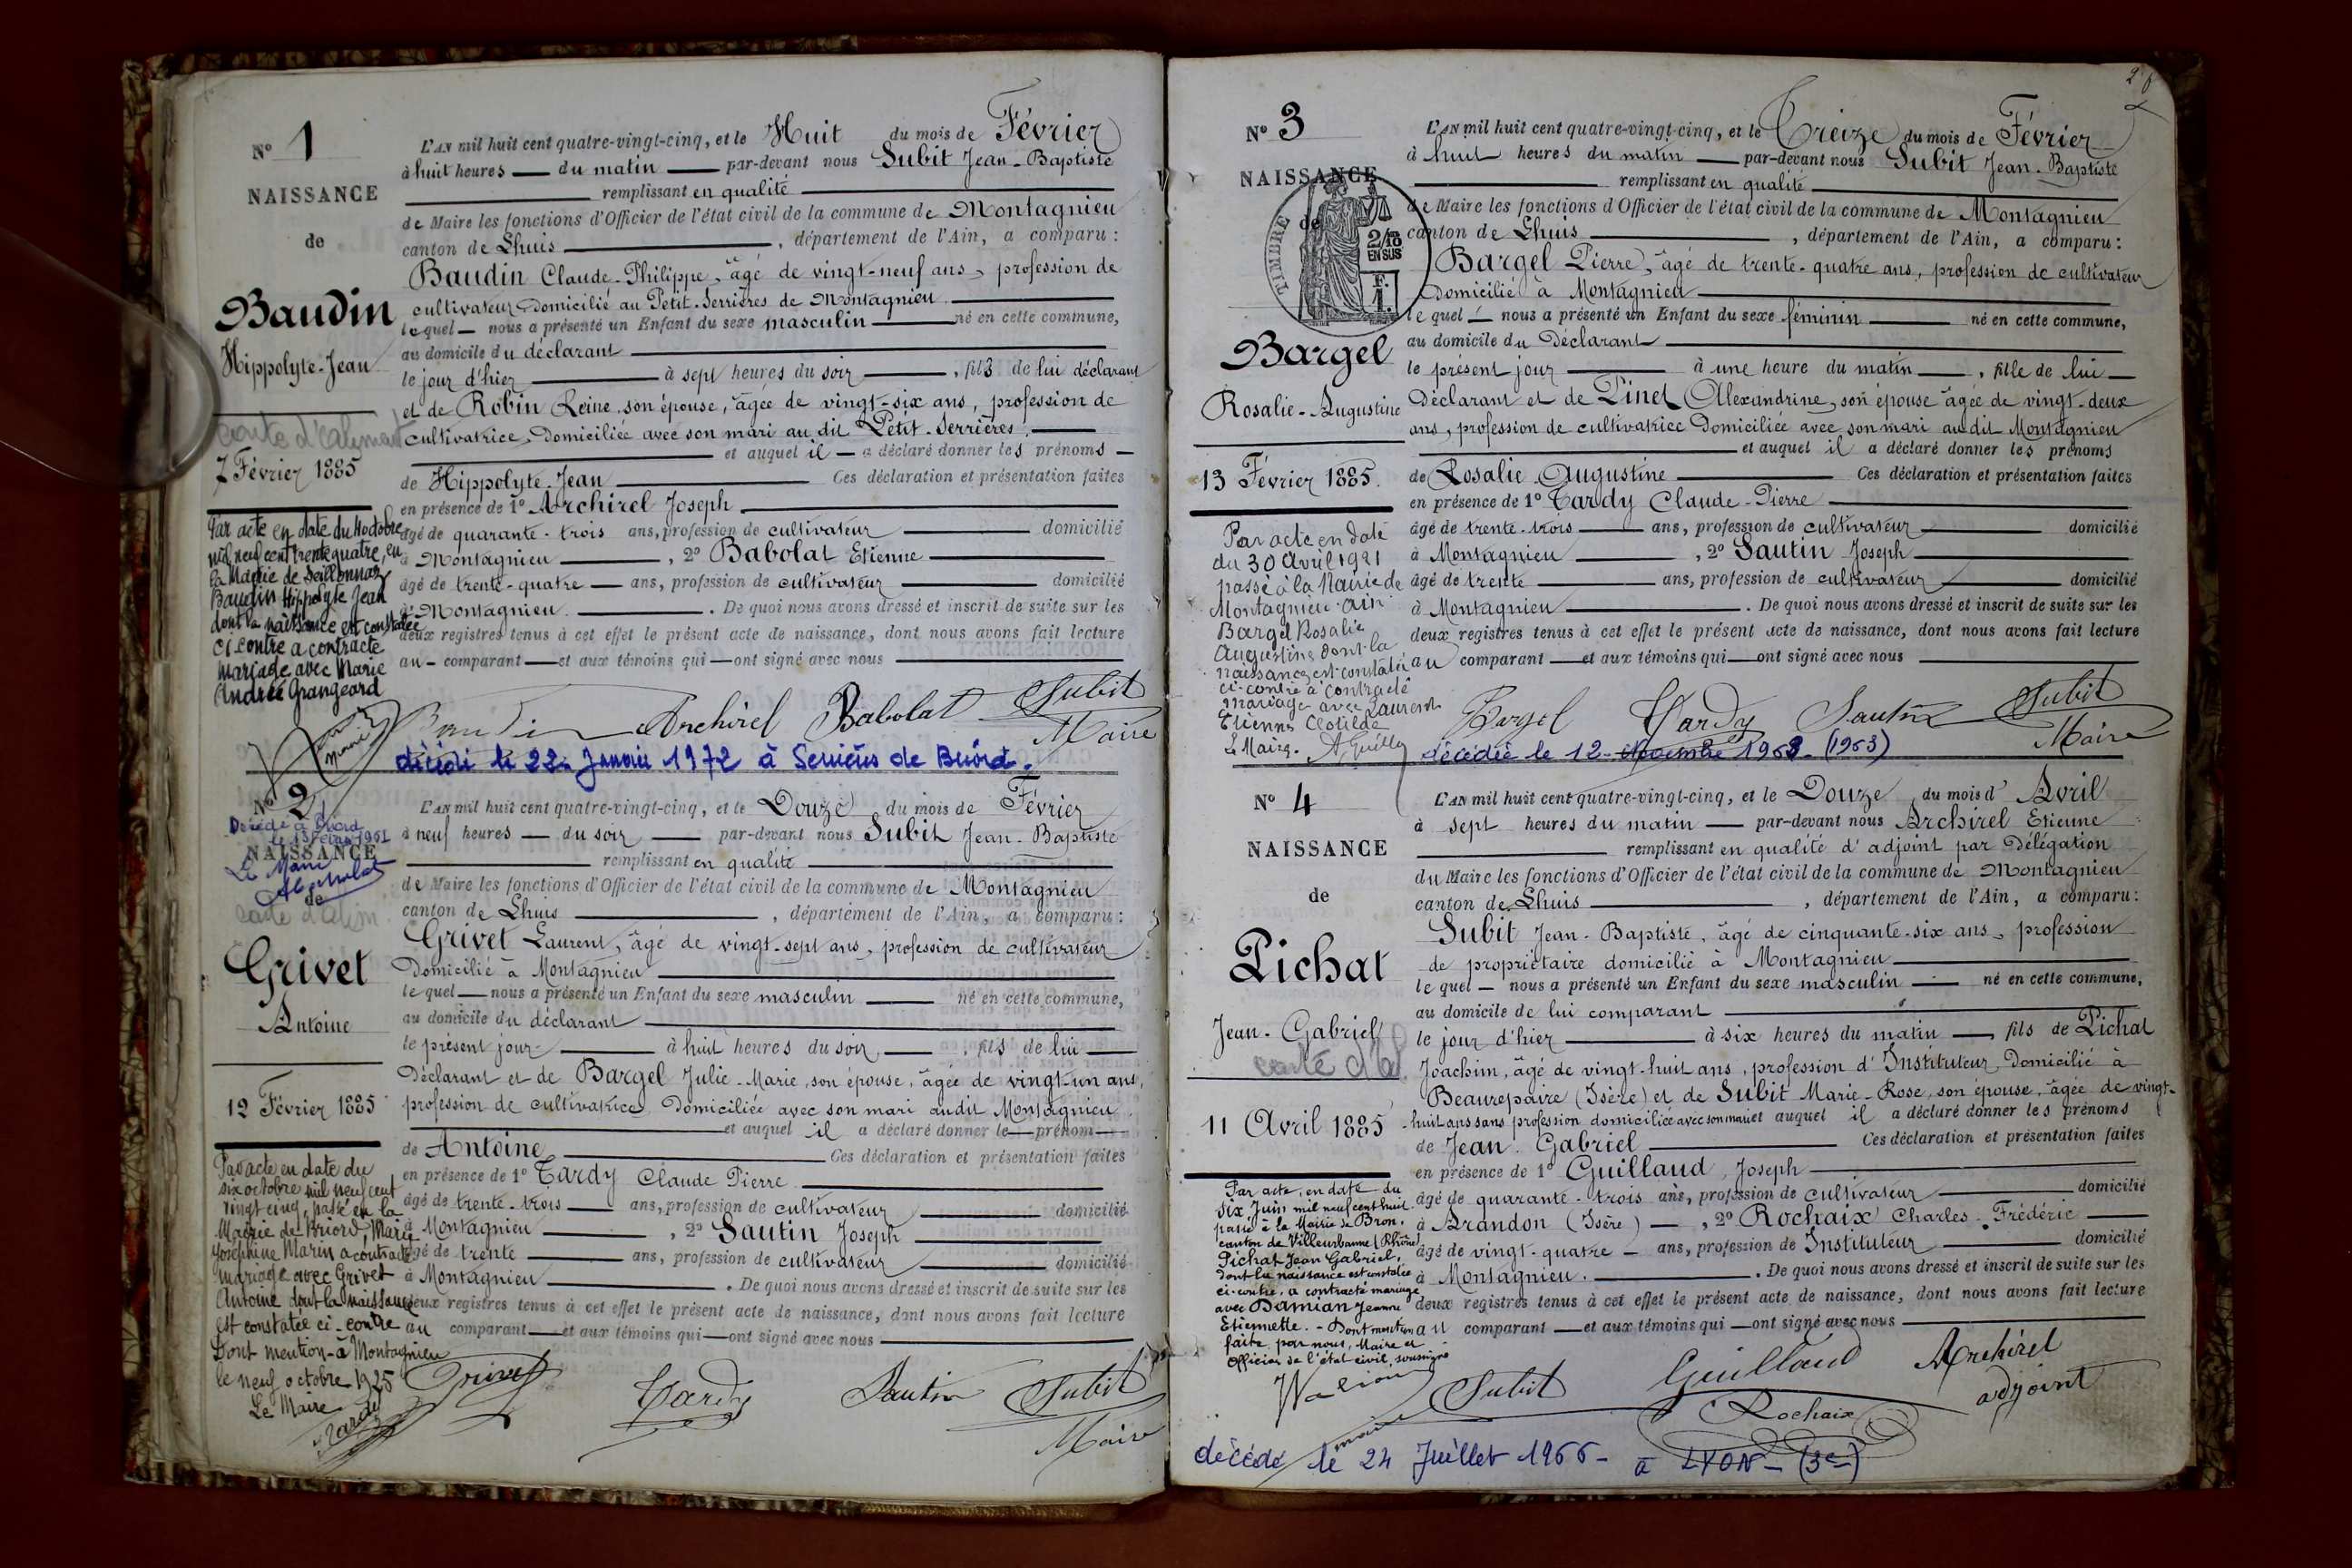 N° 1
NAISSANCE
de
Baudin
Hippolyte-Jean
carte d'aliment
7 Février 1885
Par acte en date du
mil neuf cent trente quatre, en
la Mairie de Seillonnaz
Baudin Hippolyte Jean
dont la naissance est constatée
ci contre a contracté
mariage avec Marie
Andrée Grangeard
L'AN mil huit cent quatre-vingt-cinq, et le Huit du mois de Février
à huit heures du matin par-devant nous Subit Jean-Baptiste
remplissant en qualité
de Maire les fonctions d'Officier de l'état civil de la commune de Montagnieu
canton de Lhuis, département de l'Ain, a comparu :
Baudin Claude-Philippe, âgé de vingt-neuf ans, profession de
cultivateur domicilié au Petit-Serrières de Montagnieu
lequel nous a présenté un Enfant du sexe masculin né en cette commune,
au domicile du déclarant
le jour d'hier à sept heures du soir, fils de lui déclarant
et de Robin Reine, son épouse, âgée de vingt-six ans, profession de
cultivatrice, domiciliée avec son mari au dit Petit-Serrières,
et auquel il a déclaré donner les prénoms
de Hippolyte-Jean Ces déclaration et présentation faites
en présence de 1° Archirel Joseph
âgé de quarante-trois ans, profession de cultivateur domicilié
à Montagnieu, 2° Babolat Etienne
âgé de trente-quatre ans, profession de cultivateur domicilié
à Montagnieu. De quoi nous avons dressé et inscrit de suite sur les
deux registres tenus à cet effet le présent acte de naissance, dont nous avons fait lecture
au comparant et aux témoins qui ont signé avec nous
Baudin Archirel Babolat Subit
Maire
décédé le 22 Janvier 1972 à Serrières de Briord.
N° 2
Décédé à Briord
le 13 Février 1951
NAISSANCE
Le Maire
de
carte d'alim
Grivet
Antoine
12 Février 1885
Par acte en date du
six octobre mil neuf cent
vingt cinq, passé en la
Mairie de Briord, Marie
Joséphine Marin a contracté
mariage avec Grivet
Antoine dont la naissance
est constatée ci-contre
Dont mention à Montagnieu
le neuf octobre 1925
Le Maire
Tardy
L'AN mil huit cent quatre-vingt-cinq, et le Douze du mois de Février
à neuf heures du soir par-devant nous Subit Jean-Baptiste
remplissant en qualité
de Maire les fonctions d'Officier de l'état civil de la commune de Montagnieu
canton de Lhuis, département de l'Ain, a comparu :
Grivet Laurent, âgé de vingt-sept ans, profession de cultivateur
domicilié à Montagnieu
lequel nous a présenté un Enfant du sexe masculin né en cette commune,
au domicile du déclarant
le présent jour à huit heures du soir, fils de lui
déclarant et de Bargel Julie-Marie, son épouse, âgée de vingt-un ans,
profession de cultivatrice, domiciliée avec son mari audit Montagnieu
et auquel il a déclaré donner le prénom
de Antoine Ces déclaration et présentation faites
en présence de 1° Tardy Claude Pierre
âgé de trente-trois ans, profession de cultivateur domicilié
à Montagnieu, 2° Sautin Joseph
âgé de trente ans, profession de cultivateur domicilié
à Montagnieu. De quoi nous avons dressé et inscrit de suite sur les
deux registres tenus à cet effet le présent acte de naissance, dont nous avons fait lecture
au comparant et aux témoins qui ont signé avec nous
Grivet Tardy Sautin Subit
Maire
N° 3
NAISSANCE
de
TIMBRE
2/10
EN SUS
F.
1.
Bargel
Rosalie-Augustine
13 Février 1885.
Par acte en date
du 30 Avril 1921
passé à la Mairie de
Montagnieu-Ain
Bargel Rosalie
Augustine dont la
naissance est constatée
ci-contre a contracté
mariage avec Laurent
Etienne Clotilde
Le Maire.
L'AN mil huit cent quatre-vingt-cinq, et le Treize du mois de Février
à huit heures du matin par-devant nous Subit Jean-Baptiste
remplissant en qualité
de Maire les fonctions d'Officier de l'état civil de la commune de Montagnieu
canton de Lhuis, département de l'Ain, a comparu :
Bargel Pierre, âgé de trente-quatre ans, profession de cultivateur
domicilié à Montagnieu
lequel nous a présenté un Enfant du sexe féminin né en cette commune,
au domicile du déclarant
le présent jour à une heure du matin, fille de lui
déclarant et de Pinet Alexandrine, son épouse âgée de vingt-deux
ans, profession de cultivatrice domiciliée avec son mari audit Montagnieu
et auquel il a déclaré donner les prénoms
de Rosalie Augustine Ces déclaration et présentation faites
en présence de 1° Tardy Claude-Pierre
âgé de trente-trois ans, profession de cultivateur domicilié
à Montagnieu, 2° Sautin Joseph
âgé de trente ans, profession de cultivateur domicilié
à Montagnieu. De quoi nous avons dressé et inscrit de suite sur les
deux registres tenus à cet effet le présent acte de naissance, dont nous avons fait lecture
au comparant et aux témoins qui ont signé avec nous
Bargel Tardy Sautin Subit
Maire
décédée le 12 Novembre 1963 (1963)
N° 4
NAISSANCE
de
Pichat
Jean-Gabriel
carte d'al
11 Avril 1885
Par acte, en date du
six Juin mil neuf cent huit
passé à la Mairie de Bron,
canton de Villeurbanne (Rhône)
Pichat Jean Gabriel,
dont la naissance est constatée
ci-contre, a contracté mariage
avec Damian Jeanne
Etiennette. - Dont mention
faite par nous, Maire et
officier de l'état civil, soussigné
L'AN mil huit cent quatre-vingt-cinq, et le Douze du mois d'Avril
à sept heures du matin par-devant nous Archirel Etienne
remplissant en qualité d'adjoint par délégation
du Maire les fonctions d'Officier de l'état civil de la commune de Montagnieu
canton de Lhuis, département de l'Ain, a comparu :
Subit Jean-Baptiste, âgé de cinquante-six ans, profession
de propriétaire domicilié à Montagnieu
lequel nous a présenté un Enfant du sexe masculin né en cette commune,
au domicile de lui comparant
le jour d'hier à six heures du matin, fils de Pichat
Joachim, âgé de vingt-huit ans, profession d'Instituteur domicilié à
Beaurepaire (Isère) et de Subit Marie-Rose, son épouse, âgée de vingt-
huit ans sans profession domiciliée avec son mari et auquel il a déclaré donner les prénoms
de Jean Gabriel Ces déclaration et présentation faites
en présence de 1° Guillaud Joseph
âgé de quarante-trois ans, profession de cultivateur domicilié
à Arandon (Isère), 2° Rochaix Charles-Frédéric
âgé de vingt-quatre ans, profession de Instituteur domicilié
à Montagnieu. De quoi nous avons dressé et inscrit de suite sur les
deux registres tenus à cet effet le présent acte de naissance, dont nous avons fait lecture
au comparant et aux témoins qui ont signé avec nous
Subit Guillaud Archirel
adjoint
Rochaix
décédé le 24 Juillet 1966 - à LYON - (3e)